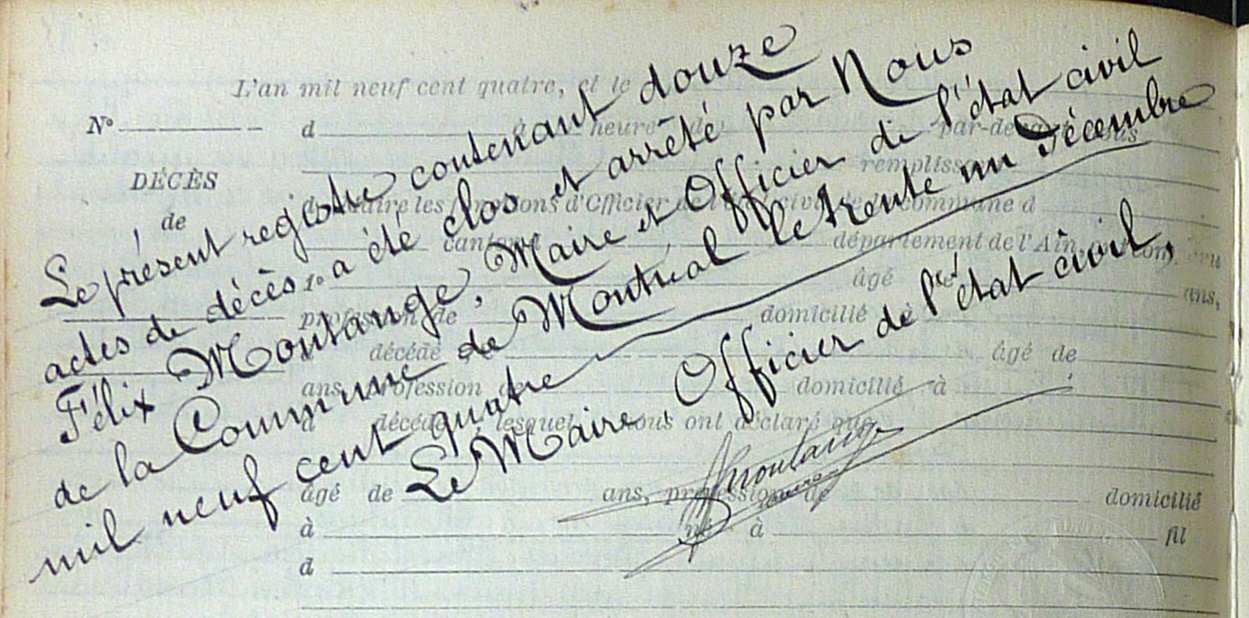 L'an mil neuf cent quatre, et le
N°
d à heure du par-devant
DÉCÈS
remplissant
de
d'Officier de l'état civil de la commune d
canton
département de l'Ain,
1° âgé de ans,
profession de domicilié à
décédé âgé de
ans, profession de domicilié à
d décédé lesquels nous ont déclaré que
âgé de ans, profession de domicilié
à né à fil
d
Le présent registre contenant douze
actes de décès a été clos et arrêté par Nous
Félix Moutange, Maire et Officier de l'état civil
de la Commune de Montréal le trente un Décembre
mil neuf cent quatre
Le Maire, Officier de l'état civil,
Moutange